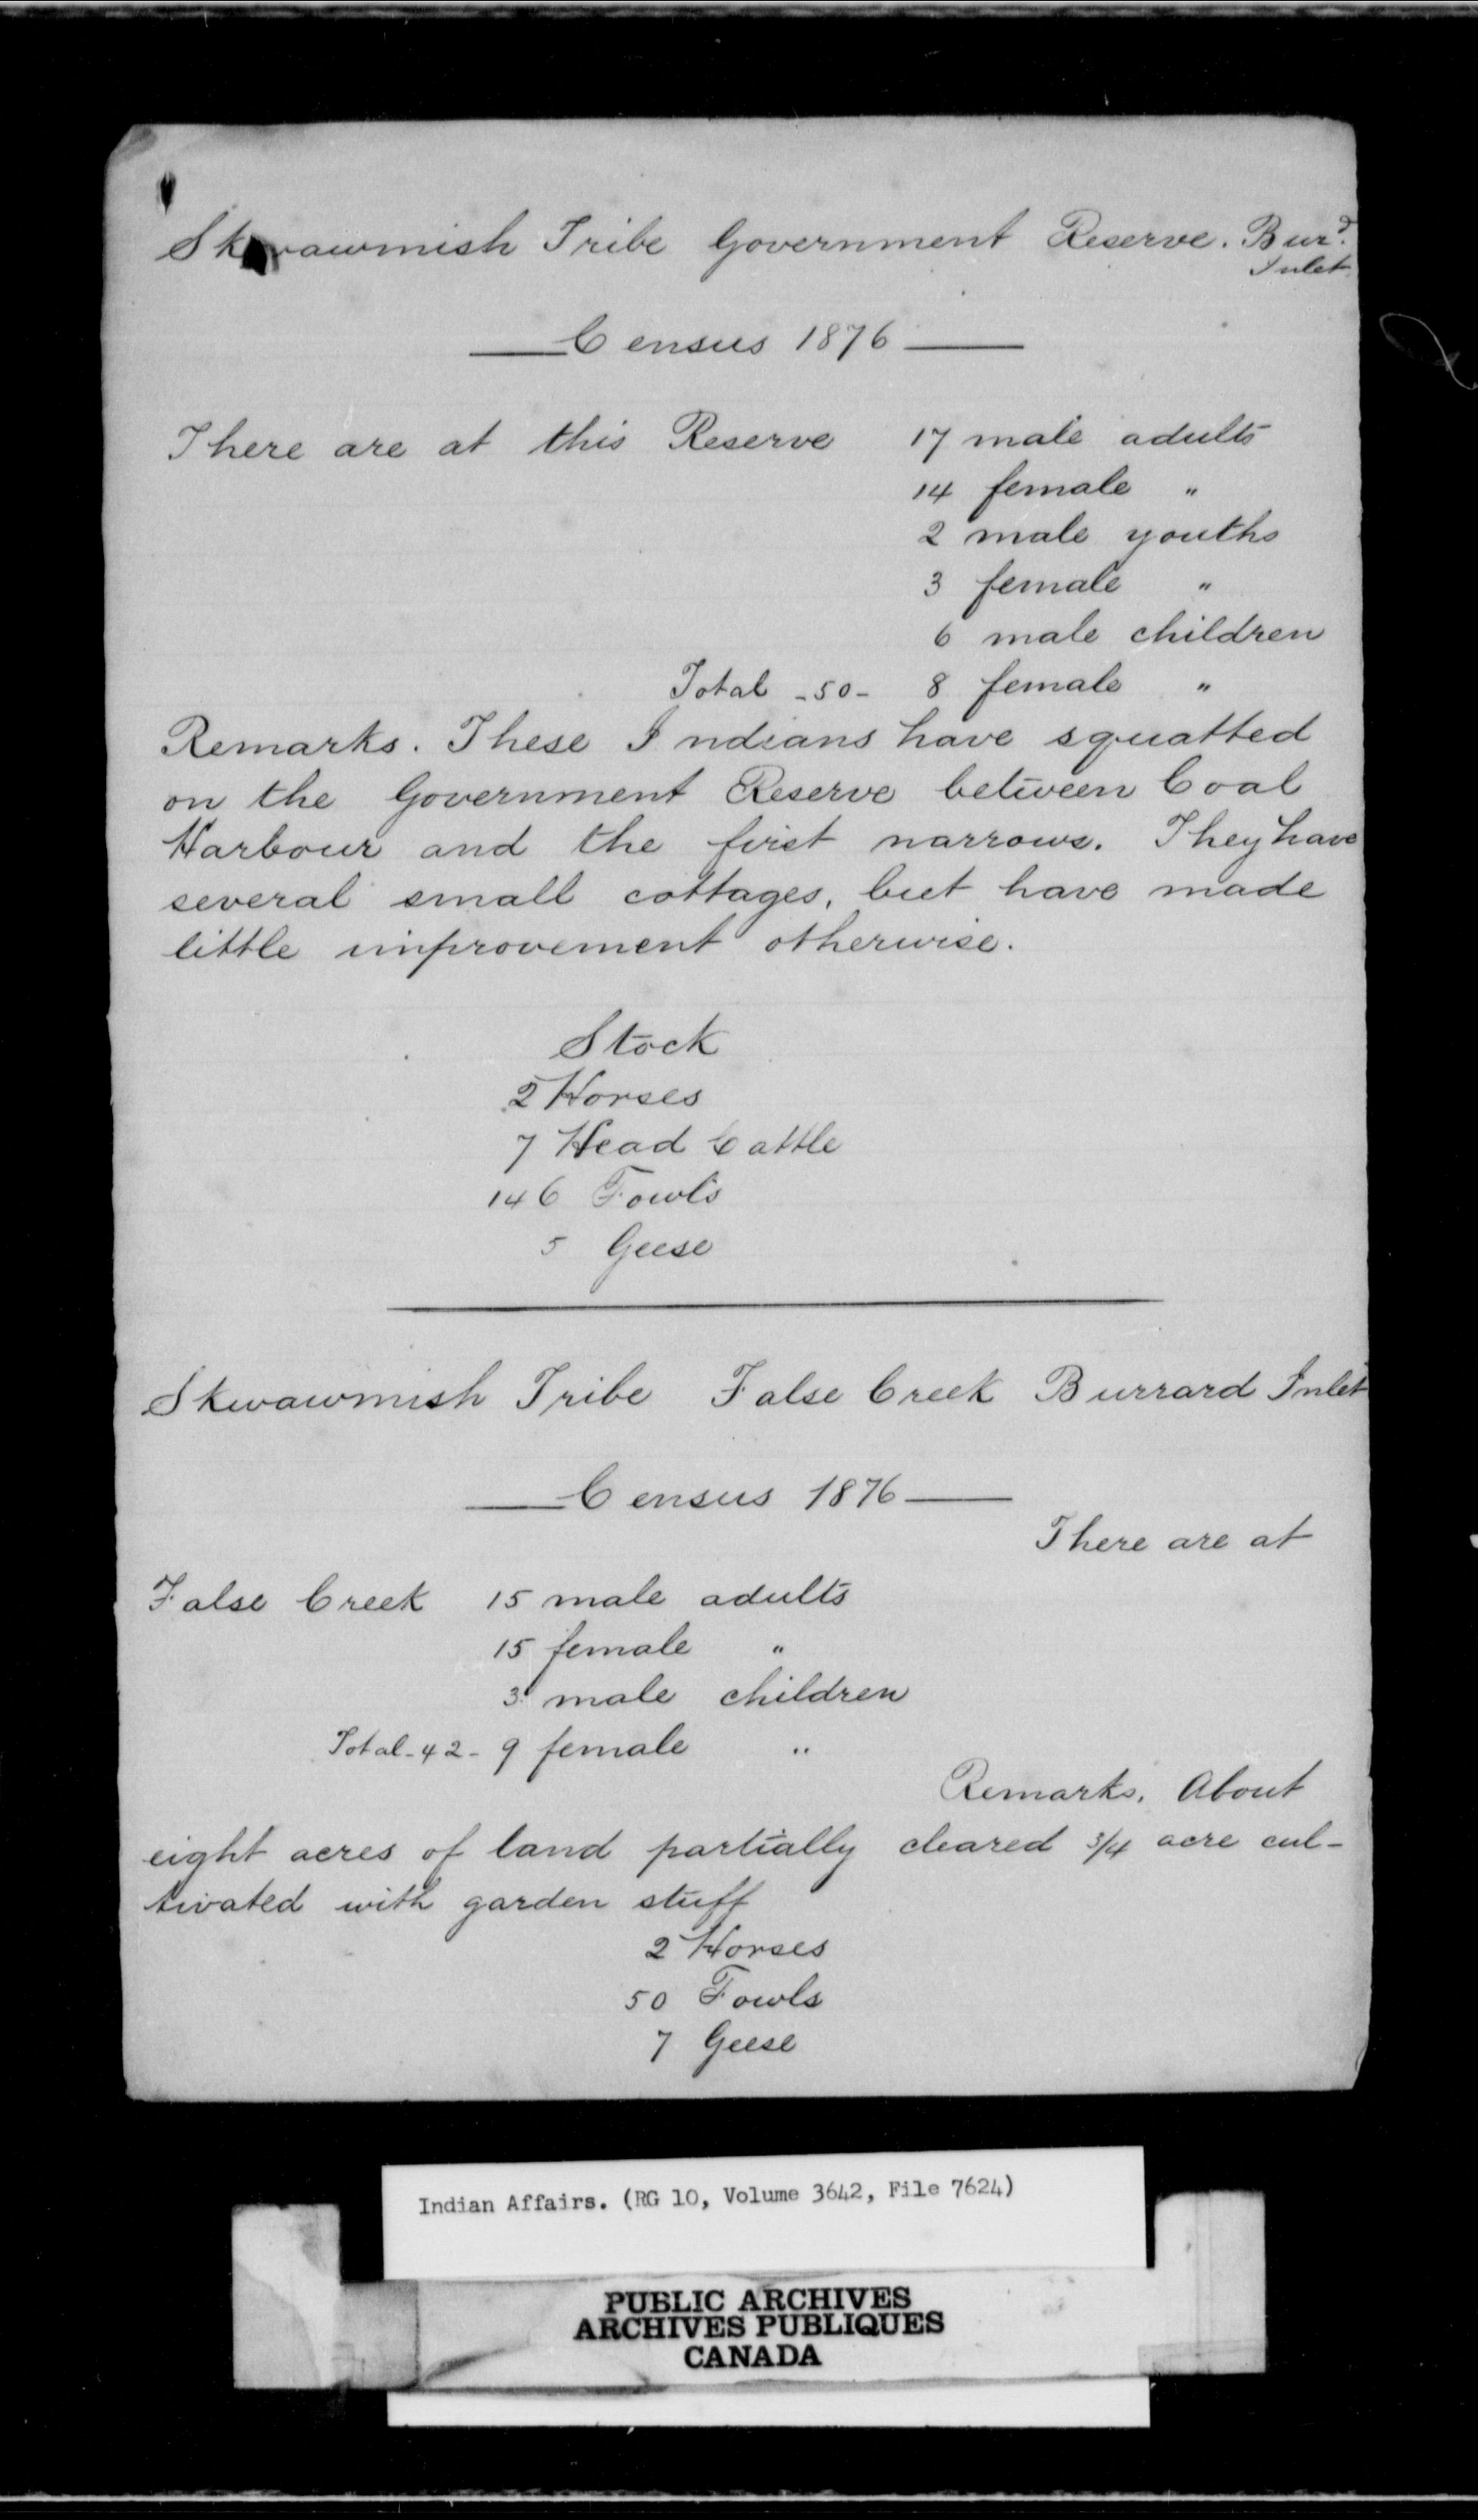 Skwawmish Tribe Government Reserve. Burd.
Inlet.
Census 1876
There are at this Reserve 17 male adults
14 female "
2 male youths
3 female "
6 male children
Total - 50 - 8 female "
Remarks. These Indians have squatted
on the Government Reserve between Coal
Harbour and the first narrows. They have
several small cottages, but have made
little improvement otherwise.
Stock
2 Horses
7 Head Cattle
146 Fowls
5 Geese
Skwawmish Tribe False Creek Burrard Inlet
Census 1876
There are at
False Creek 15 male adults
15 female "
3 male children
Total - 42 - 9 female "
Remarks. About
eight acres of land partially cleared 3/4 acre cul-
tivated with garden stuff
2 Horses
50 Fowls
7 Geese
Indian Affairs. (RG 10, Volume 3642, File 7624)
PUBLIC ARCHIVES
ARCHIVES PUBLIQUES
CANADA